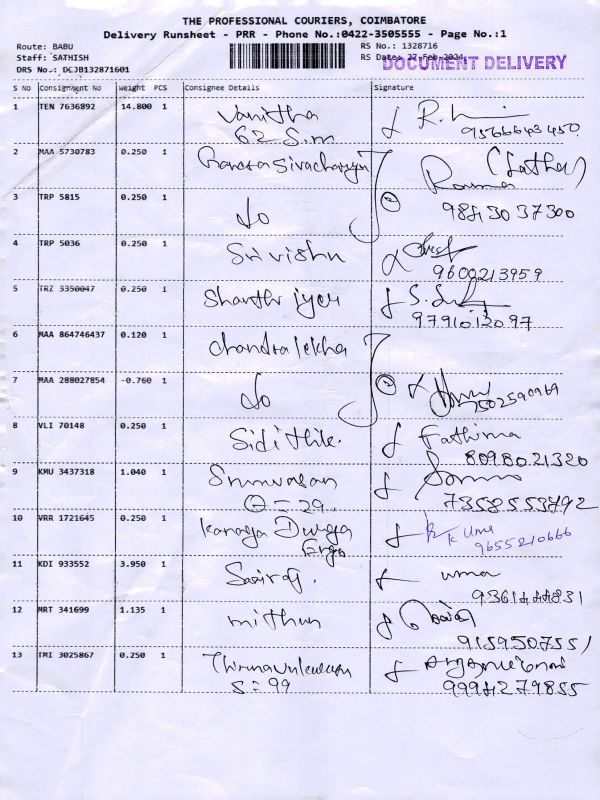 THE PROFESSIONAL COURIERS, COIMBATORE
Delivery Runsheet - PRR - Phone No.:0422-3505555 - Page No.:1
Route: BABU RS No.: 1328716
Staff: SATHISH RS Date: 27-Feb-2024
DRS No.: DCJB132871601 DOCUMENT DELIVERY
S No Consignment No Weight PCS Consignee Details Signature
1 TEN 7636892 14.800 1 Vanitha
62 S.m
2 MAA 5730783 0.250 1 (Latha)
3 TRP 5815 0.250 1 do Rama 9843037300
4 TRP 5036 0.250 1 Sri vishnu 9600213959
5 TRZ 3350047 0.250 1 Shanthi iyer 9791012097
6 MAA 864746437 0.120 1 chandralekha
7 MAA 288027854 -0.760 1 do 7502590969
8 VLI 70148 0.250 1 Fathima
8098021320
9 KMU 3437318 1.040 1 Srinivasan
7358553792
10 VRR 1721645 0.250 1 Kanaga Durga k Uma
9655210666
11 KDI 933552 3.950 1 Sairaj. uma
9361444831
12 MRT 341699 1.135 1 mithun
9159507551
13 TMI 3025867 0.250 1
S=99 9994279855